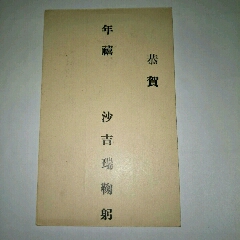 恭賀
年禧 沙吉瑞鞠躬